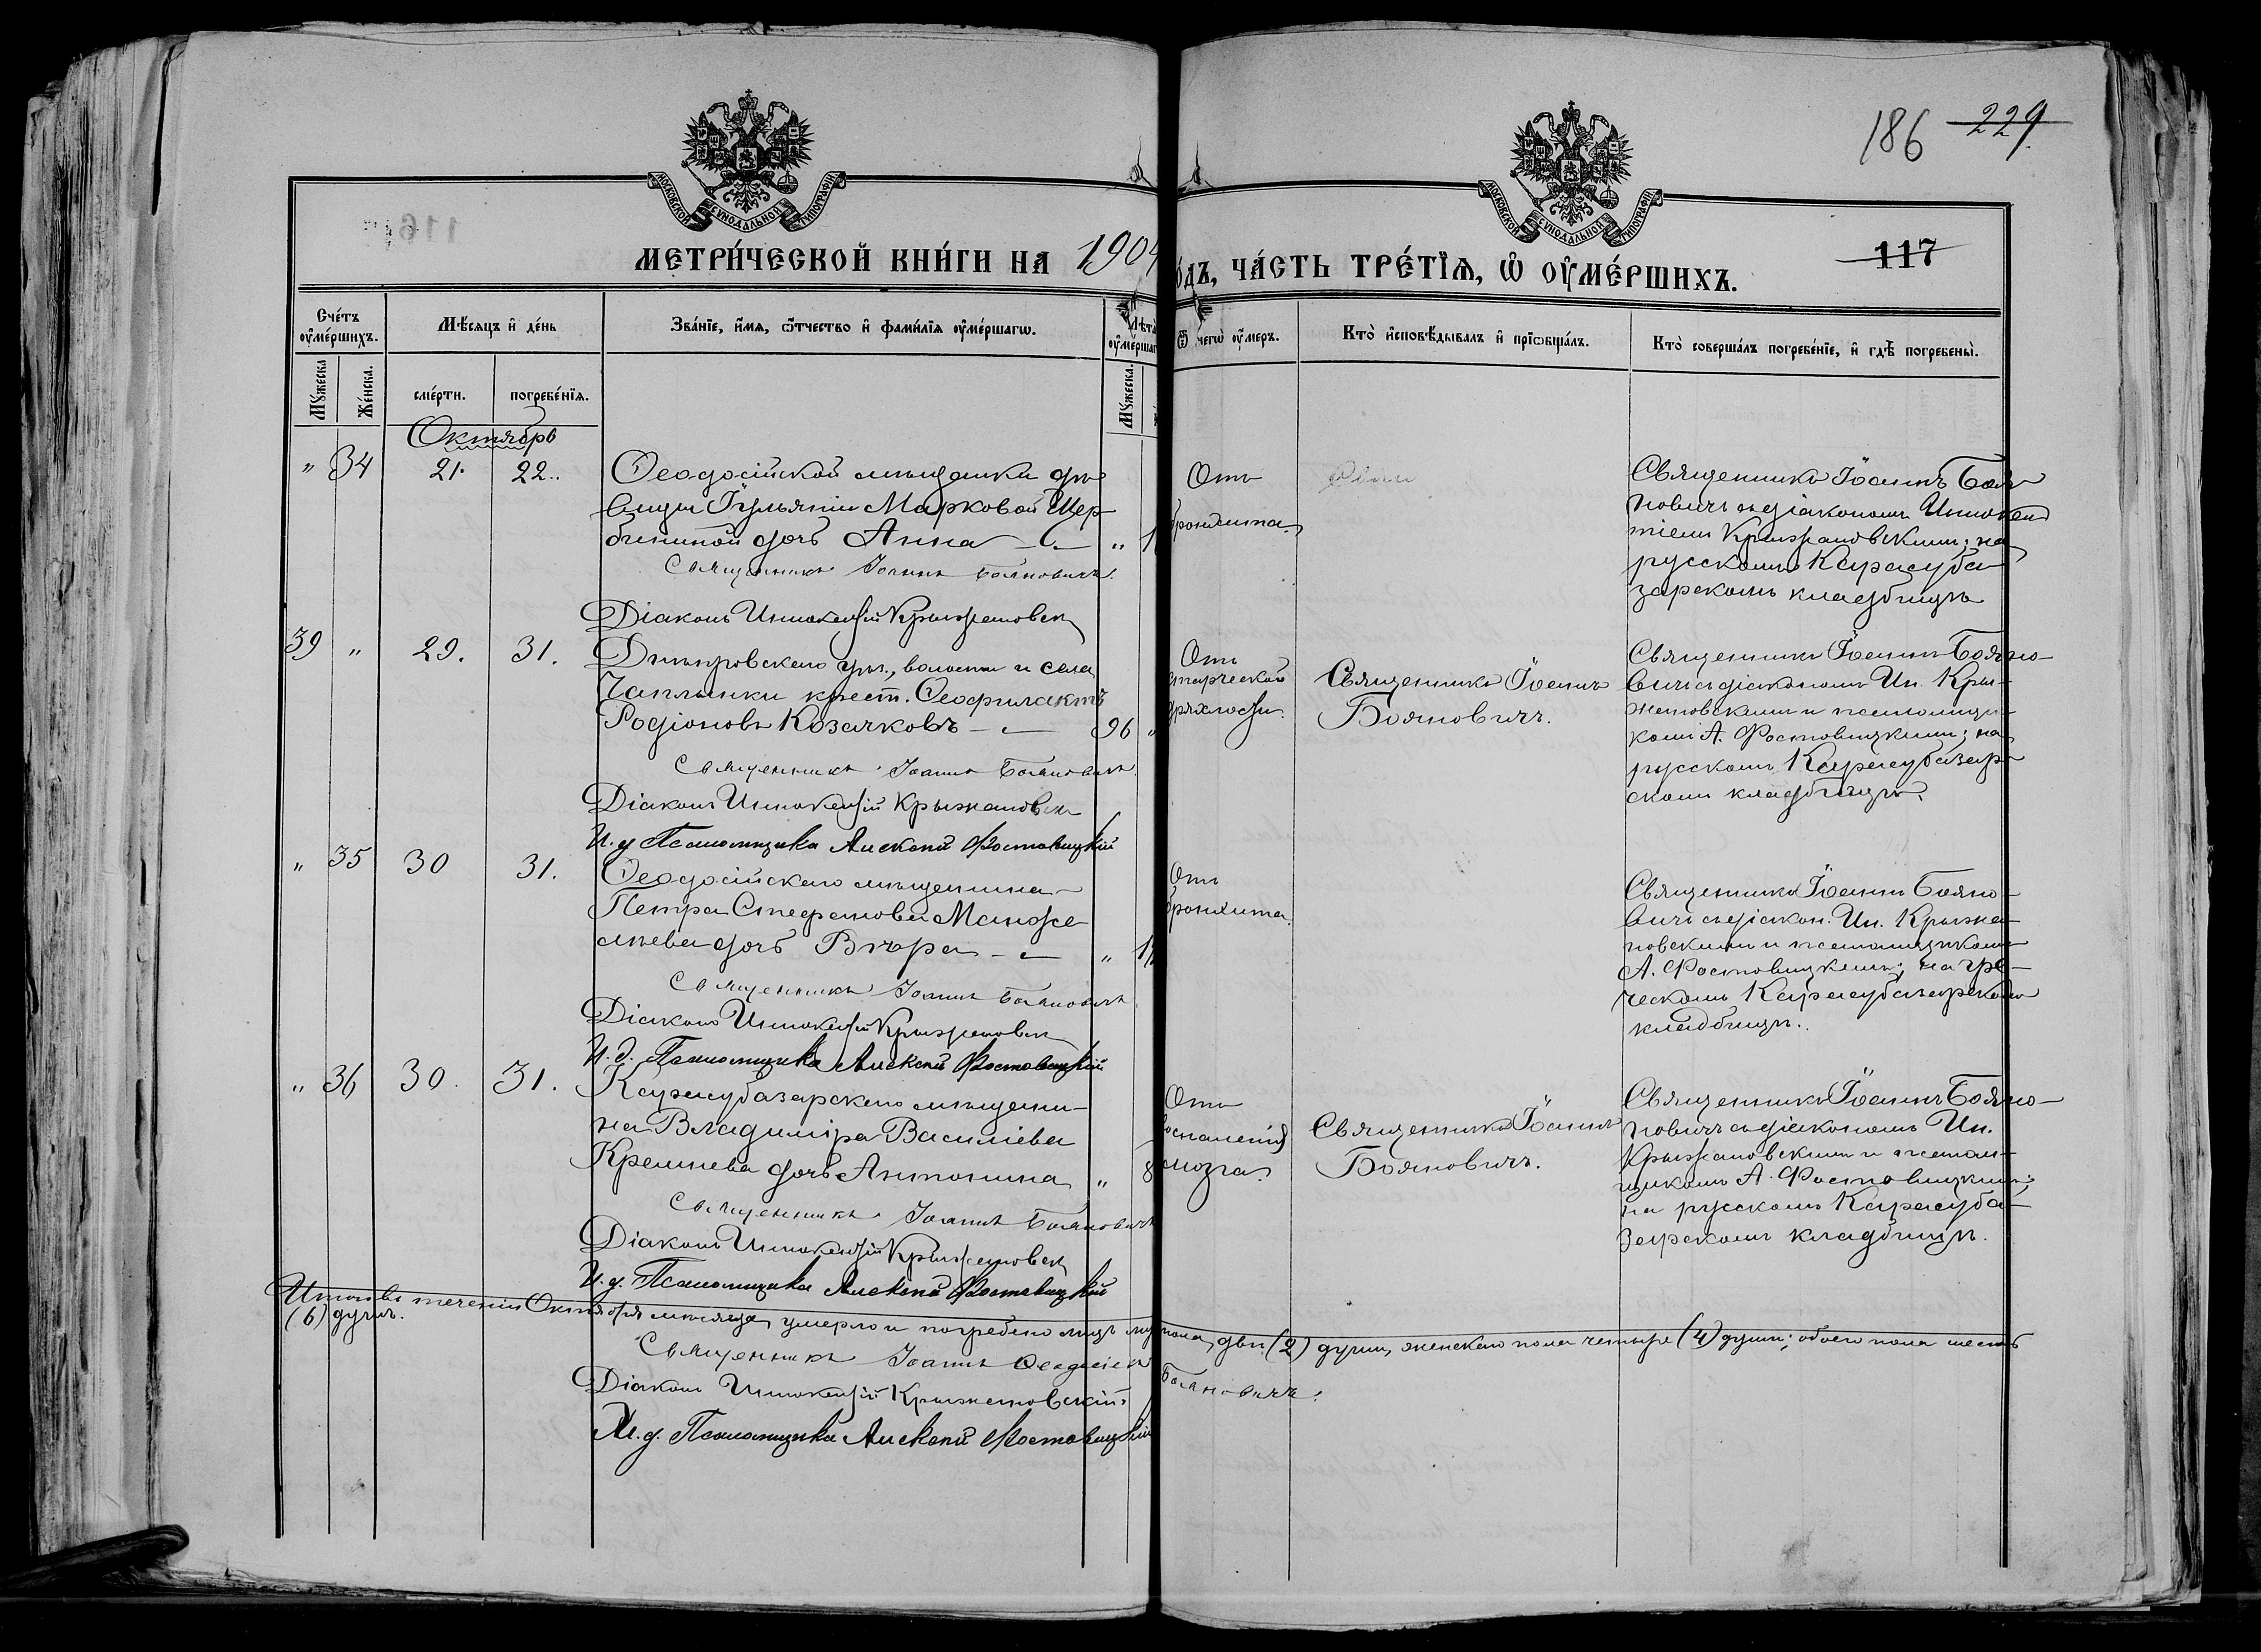 186 229
МОСКОВСКОЙ СѴНОДАЛЬНОЙ ТИПОГРАФІИ
МОСКОВСКОЙ СѴНОДАЛЬНОЙ ТИПОГРАФІИ
116
117
МЕТРИ́ЧЕСКОЙ КНИ́ГИ НА 1904
О́ДЪ, ЧА́СТЬ ТРЕ́ТЇѦ, Ѡ҆ ОУ҆МЕ́РШИХЪ.
Сче́тъ оу҆ме́ршихъ.
Мѣ́сяцъ и҆ де́нь
Зва́нїе, и҆́мя, ѿтчество и҆ фами́лїя оу҆ме́ршагѡ.
Лѣта оу҆ме́ршаг
Ѿ чегѡ̀ оу҆́меръ.
Кто̀ и҆сповѣ́дывалъ и҆ прїѡбща́лъ.
Кто̀ соверша́лъ погребе́нїе, и҆ гдѣ̀ погребены̀.
Му́жеска
Же́нска.
сме́рти.
погребе́нїя.
Му́жеска.
Октябрь
" 34 21. 22.
Ѳеодосійской мѣщанки дѣ-
вицы Іульяніи Марковой Щер-
бининой дочь Анна "
Священникъ Іоаннъ Бояновичъ.
Діаконъ Иннокентій Крыжановск
Отъ
бронхита.
Священникъ Іоаннъ Боя-
новичъ съ діакономъ Иннокен
тіемъ Крыжановскимъ; на
русскомъ Карасуба
зарскомъ кладбищѣ
39 " 29. 31.
Днѣпровскаго уѣз., волости и села
Чаплынки крест. Ѳеофилактъ
Родіоновъ Козачковъ 96 "
Священникъ Іоаннъ Бояновичъ
Діаконъ Иннокентій Крыжановск
И. д. Псаломщика Алексѣй Фостовицкій
Отъ
старческой
дряхлости.
Священникъ Іоаннъ
Бояновичъ.
Священникъ Іоаннъ Бояно-
вичъ съ діакономъ Ин. Кры-
жановскимъ и псаломщи-
комъ А. Фостовицкимъ; на
русскомъ Карасубазар-
скомъ кладбищѣ.
" 35 30 31.
Ѳеодосійскаго мѣщанина
Петра Стефанова
дочь Вѣра "
Священникъ Іоаннъ Бояновичъ
Діаконъ Иннокентій Крыжановск
И. д. Псаломщика Алексѣй Фостовицкій
Отъ
бронхита.
Священникъ Іоаннъ Бояно-
вичъ съ діакон. Ин. Крыжа-
новскимъ и псаломщикомъ
А. Фостовицкимъ; на гре-
ческомъ Карасубазарскомъ
кладбищѣ.
" 36 30. 31.
Карасубазарскаго мѣщани-
на Владиміра Василіева
Кремнева дочь Антонина " 8
Священникъ Іоаннъ Бояновичъ
Діаконъ Иннокентій Крыжановск
И. д. Псаломщика Алексѣй Фостовицкій
Отъ
воспаленія
мозга.
Священникъ Іоаннъ
Бояновичъ.
Священникъ Іоаннъ Бояно-
новичъ съ діакономъ Ин.
Крыжановскимъ и псалом-
щикомъ А. Фостовицкимъ;
на русскомъ Карасуба-
зарскомъ кладбищѣ.
Итого въ теченіи Октября мѣсяца умерло и погребено лицъ муж пола двѣ (2) души, женскаго пола четыре (4) души; обоего пола шесть
(6) душъ.
Священникъ Іоаннъ Бояновичъ.
Діаконъ Иннокентій Крыжановскій
И. д. Псаломщика Алексѣй Фостовицкій